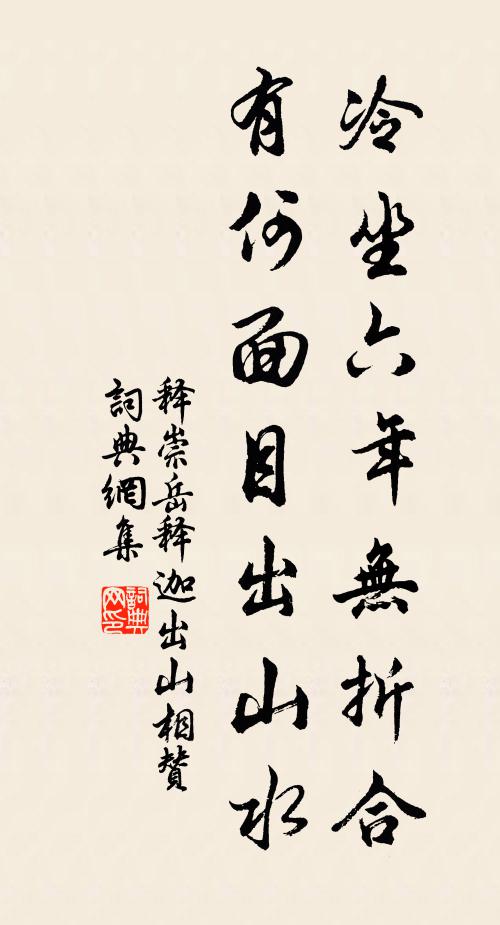 冷坐六年無折合
有何面目出山水
释崇岳释迦出山相賛
詞典網集
詞典网印